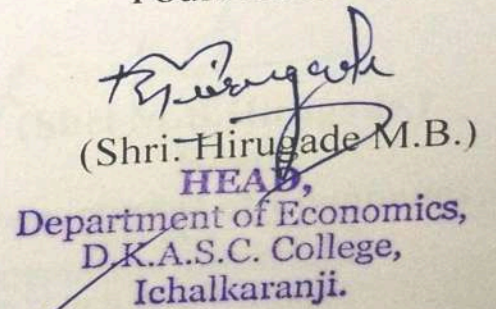 (Shri. Hirugade M.B.)
HEAD,
Department of Economics,
D.K.A.S.C. College,
Ichalkaranji.